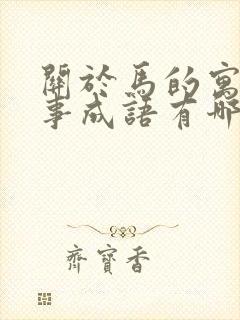 關於馬的寓
事成語有哪
齊寶香